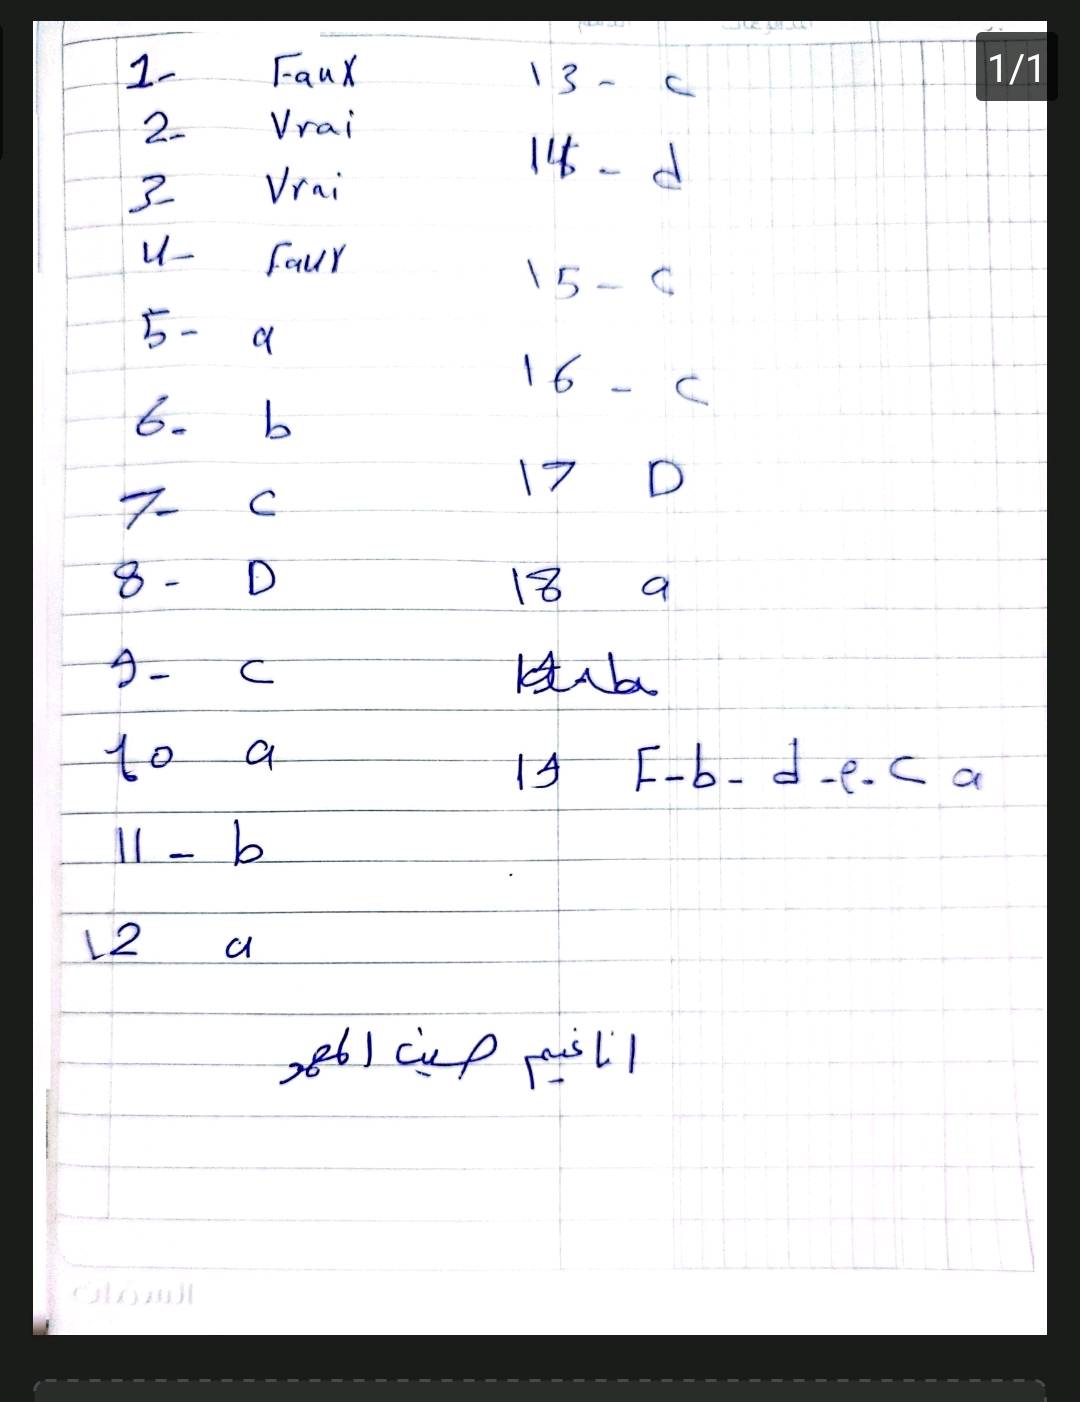 1/1
1- Faux
2- Vrai
3- Vrai
4- Faux
5- a
6- b
7- c
8- D
9- c
10 a
11- b
12 a
13- c
14- d
15- c
16- c
17 D
18 a
19 F-b-d-e-c a
انا